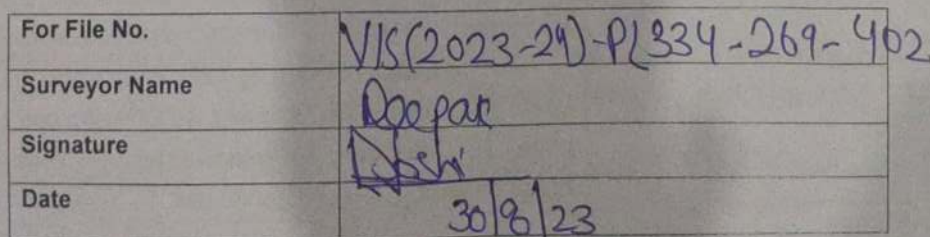 For File No. VIS(2023-24)-PL334-269-402
Surveyor Name Deepak
Signature DJoshi
Date 30/8/23